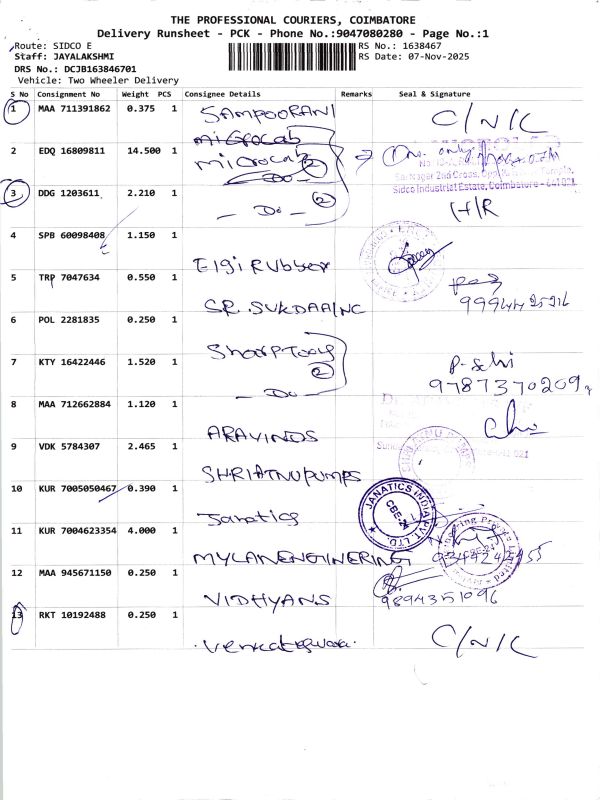 THE PROFESSIONAL COURIERS, COIMBATORE
Delivery Runsheet - PCK - Phone No.:9047080280 - Page No.:1
Route: SIDCO E
RS No.: 1638467
Staff: JAYALAKSHMI
RS Date: 07-Nov-2025
DRS No.: DCJB163846701
Vehicle: Two Wheeler Delivery
S No Consignment No Weight PCS Consignee Details Remarks Seal & Signature
1 MAA 711391862 0.375 1 SAMPOORANI C/N/C
microcab
2 EDQ 16809811 14.500 1 microcab 2 only
Sidco Industrial Estate, Coimbatore - 641 021
3 DDG 1203611 2.210 1 - Do - 2 H/R
4 SPB 60098408 1.150 1 Elgi Rubber
5 TRP 7047634 0.550 1 SR. SUKDAAINC
6 POL 2281835 0.250 1 Sharp Tooly 2
7 KTY 16422446 1.520 1 - Do - P. Selvi
9787370209
8 MAA 712662884 1.120 1 ARAVINDS
9 VDK 5784307 2.465 1 SHRIATNUPUMPS
10 KUR 7005050467 0.390 1 Janatics
JANATICS INDIA PVT. LTD.
CBE-21
11 KUR 7004623354 4.000 1 MYLANENGINERING
12 MAA 945671150 0.250 1 VIDHYANS 9894351096
13 RKT 10192488 0.250 1 Venkateswara C/N/C